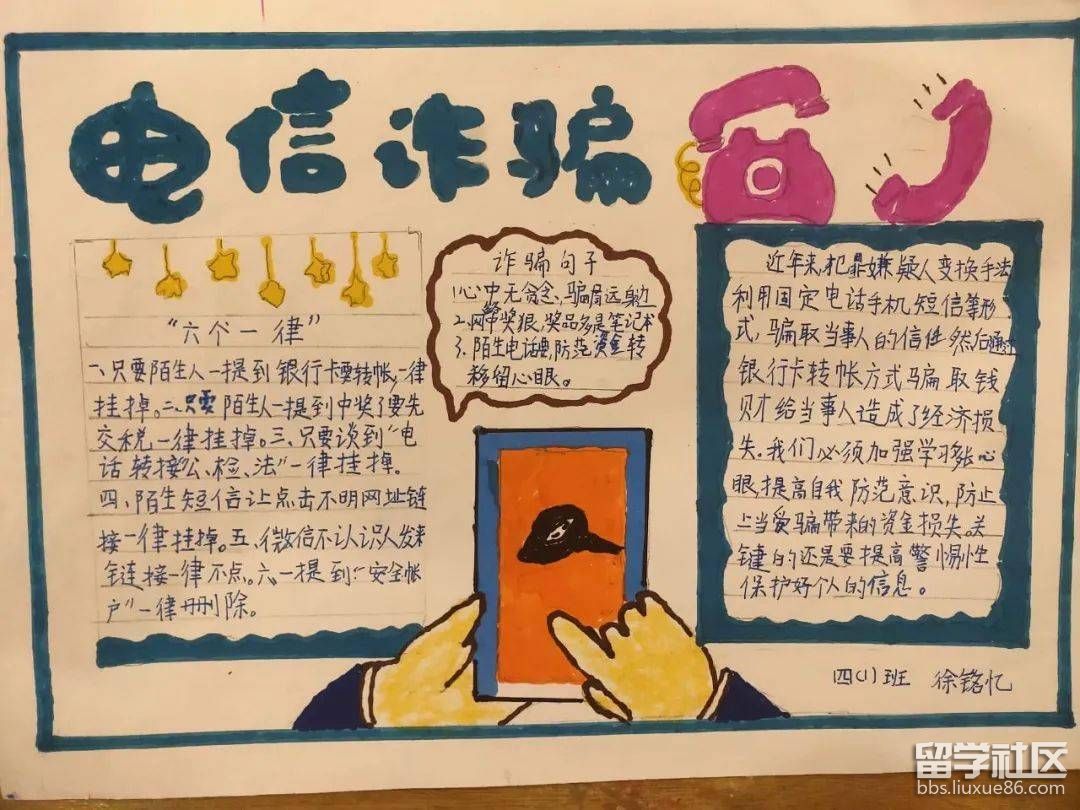 电信诈骗
“六个一律”
一、只要陌生人一提到银行卡要转帐,一律
挂掉。二、只要陌生人一提到中奖了要先
交税一律挂掉。三、只要谈到“电
话转接公、检、法”一律挂掉。
四、陌生短信让点击不明网址链
接一律挂掉。五、微信不认识人发来
链接一律不点。六、一提到“安全帐
户”一律删除。
诈骗句子
1心中无贪念、骗局远身边
2、网中奖狠,奖品多是笔记本
3、陌生电话要防范资金转
移留心眼。
近年来,犯罪嫌疑人变换手法
利用固定电话手机短信等形
式,骗取当事人的信任然后通过
银行卡转帐方式骗取钱
财给当事人造成了经济损
失。我们必须加强学习张心
眼提高自我防范意识,防止
上当受骗带来的资金损失。关
键的还是要提高警惕性
保护好个人的信息。
四(1)班 徐铭忆
留学社区
bbs.liuxue86.com